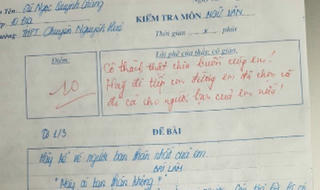 Tên: Cù Ngọc Quỳnh Giang
10 Địa
Trường: THPT Chuyên Nguyễn Huệ
KIỂM TRA MÔN NGỮ VĂN
Thời gian phút
Điểm
10
Lời phê của thầy, cô giáo
Cô thành thật chia buồn cùng em!
Hãy đi tiếp con đường em đã chọn và
đi cả cho người bạn của em nữa!
ĐỀ BÀI
Hãy kể về người bạn thân nhất của em.
BÀI LÀM
"Mày có bạn thân không?"